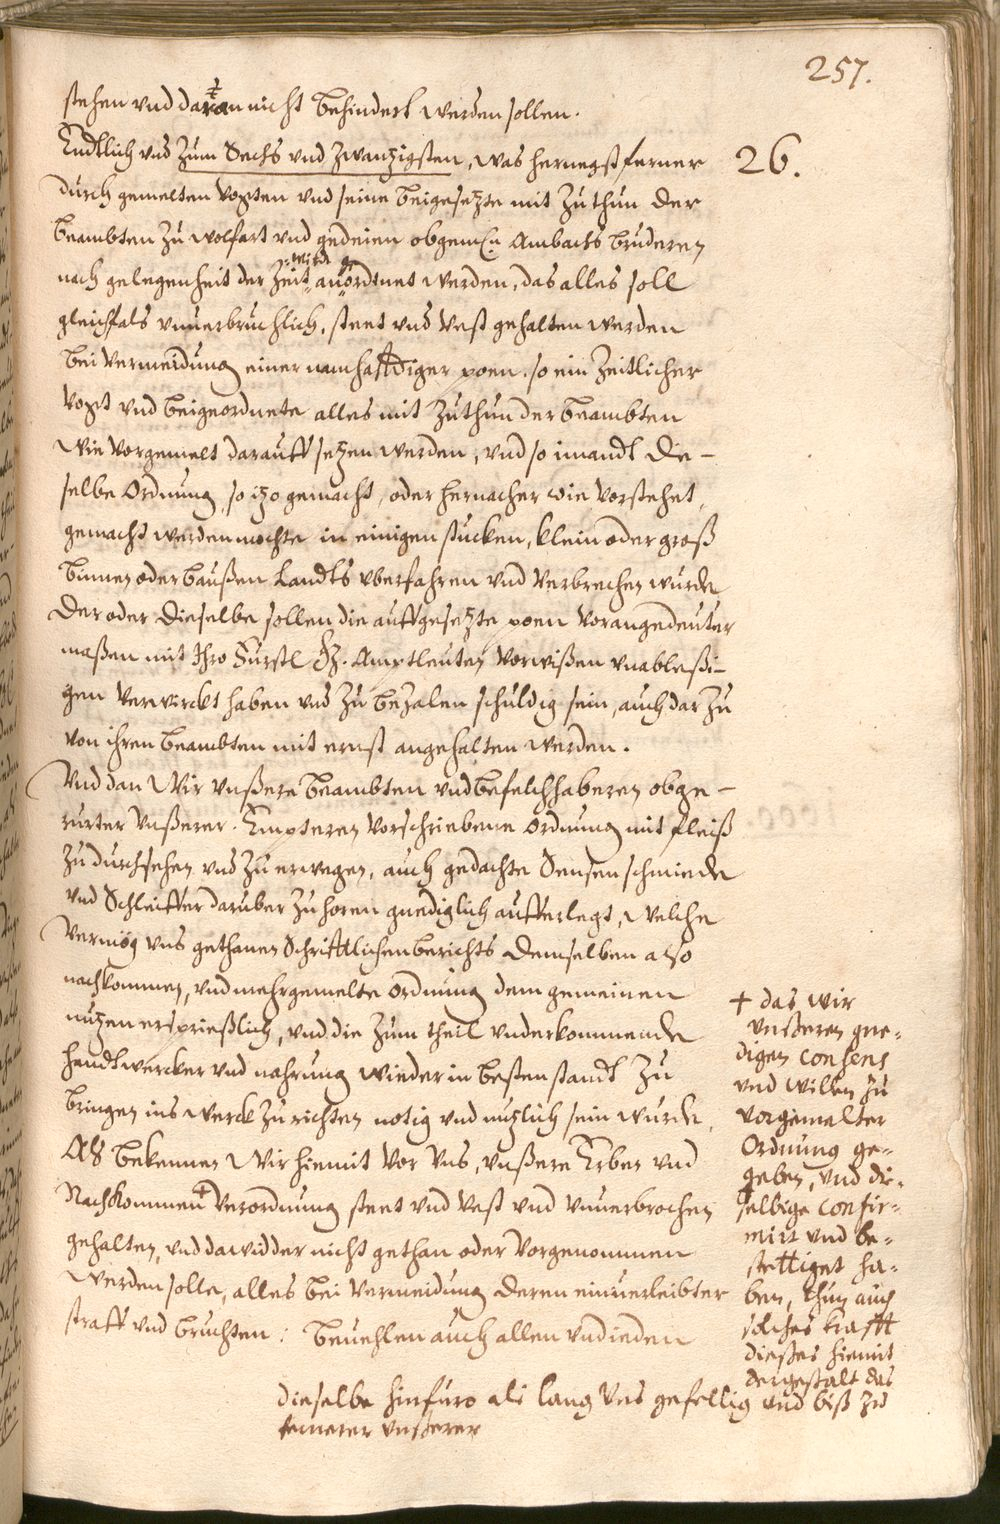 257.
stehen vnd daran nicht behindert werden sollen.
Endtlich vnd zum Sechs vnd zwanzigsten, was hernegst ferner
26.
durch gemelten Vogten vnd seine beigesetzte mit zuthun der
beambten zu wolfart vnd gedeien obgemn ambachts bruderen
nach gelegenheit der Zeit angeordtnet werden, das alles soll
gleichfals vnuerbruchlich, steet vnd vest gehalten werden
bei vermeidung einer namhafftdiger poen, so ein Zeitlicher
Vogt vnd beigeordnete alles mit zuthun der beambten
wie vorgemelt darauff setzen werden, vnd so imandt die-
selbe Ordnung, so itzo gemacht, oder hernacher wie vorstehet,
gemacht werden mochte in einigen stucken, klein oder groß
binnen oder baußen Landts vberfahren vnd verbrechen wurde
Der oder dieselbe sollen die auffgesetzte poen vorangedeuter
maßen mit Ihro Furstl Amptleuten vorwißen vnableßi-
gen verwirckt haben vnd zu bezalen schuldig sein, auch dar zu
von ihren beambten mit ernst angehalten werden.
Vnd dan Wir vnßere beambten vnd befelchhaberen obge-
rurter vnßerer Empteren vorschriebene Ordnung mit fleiß
zu durchsehen vnd zu erwegen, auch gedachte Sensenschmiede
vnd Schleiffer daruber zu horen gnediglich aufferlegt, welche
vermög vns gethanen Schrifftlichen berichts demselben also
nachkommen, vnd mehrgemelte Ordnung dem gemeinen
nutzen ersprießlich, vnd die zum theil vnderkommende
handtwercker vnd nahrung wieder in besten standt zu
bringen ins werck zu richten notig vnd nutzlich sein wurde,
Als bekennen Wir hiemit vor vns, vnßere Erben vnd
Nachkommen + verordnung steet vnd vest vnd vnuerbrochen
gehalten, vnd dawidder nicht gethan oder vorgenommen
werden solle, alles bei vermeidung deren einuerleibter
straff vnd bruchten: beuehlen auch allen vnd ieden
+ das wir
vnßeren gne-
digen consens
vnd willen zu
vorgemalter
Ordnung ge-
geben, vnd die-
selbige confir-
mirt vnd be-
stettiget ha-
ben, thun auch
solches krafft
dießes hiemit
dergestalt das
dieselbe hinfuro als lang vns gefellig vnd biß zu
fernerer vnßerer